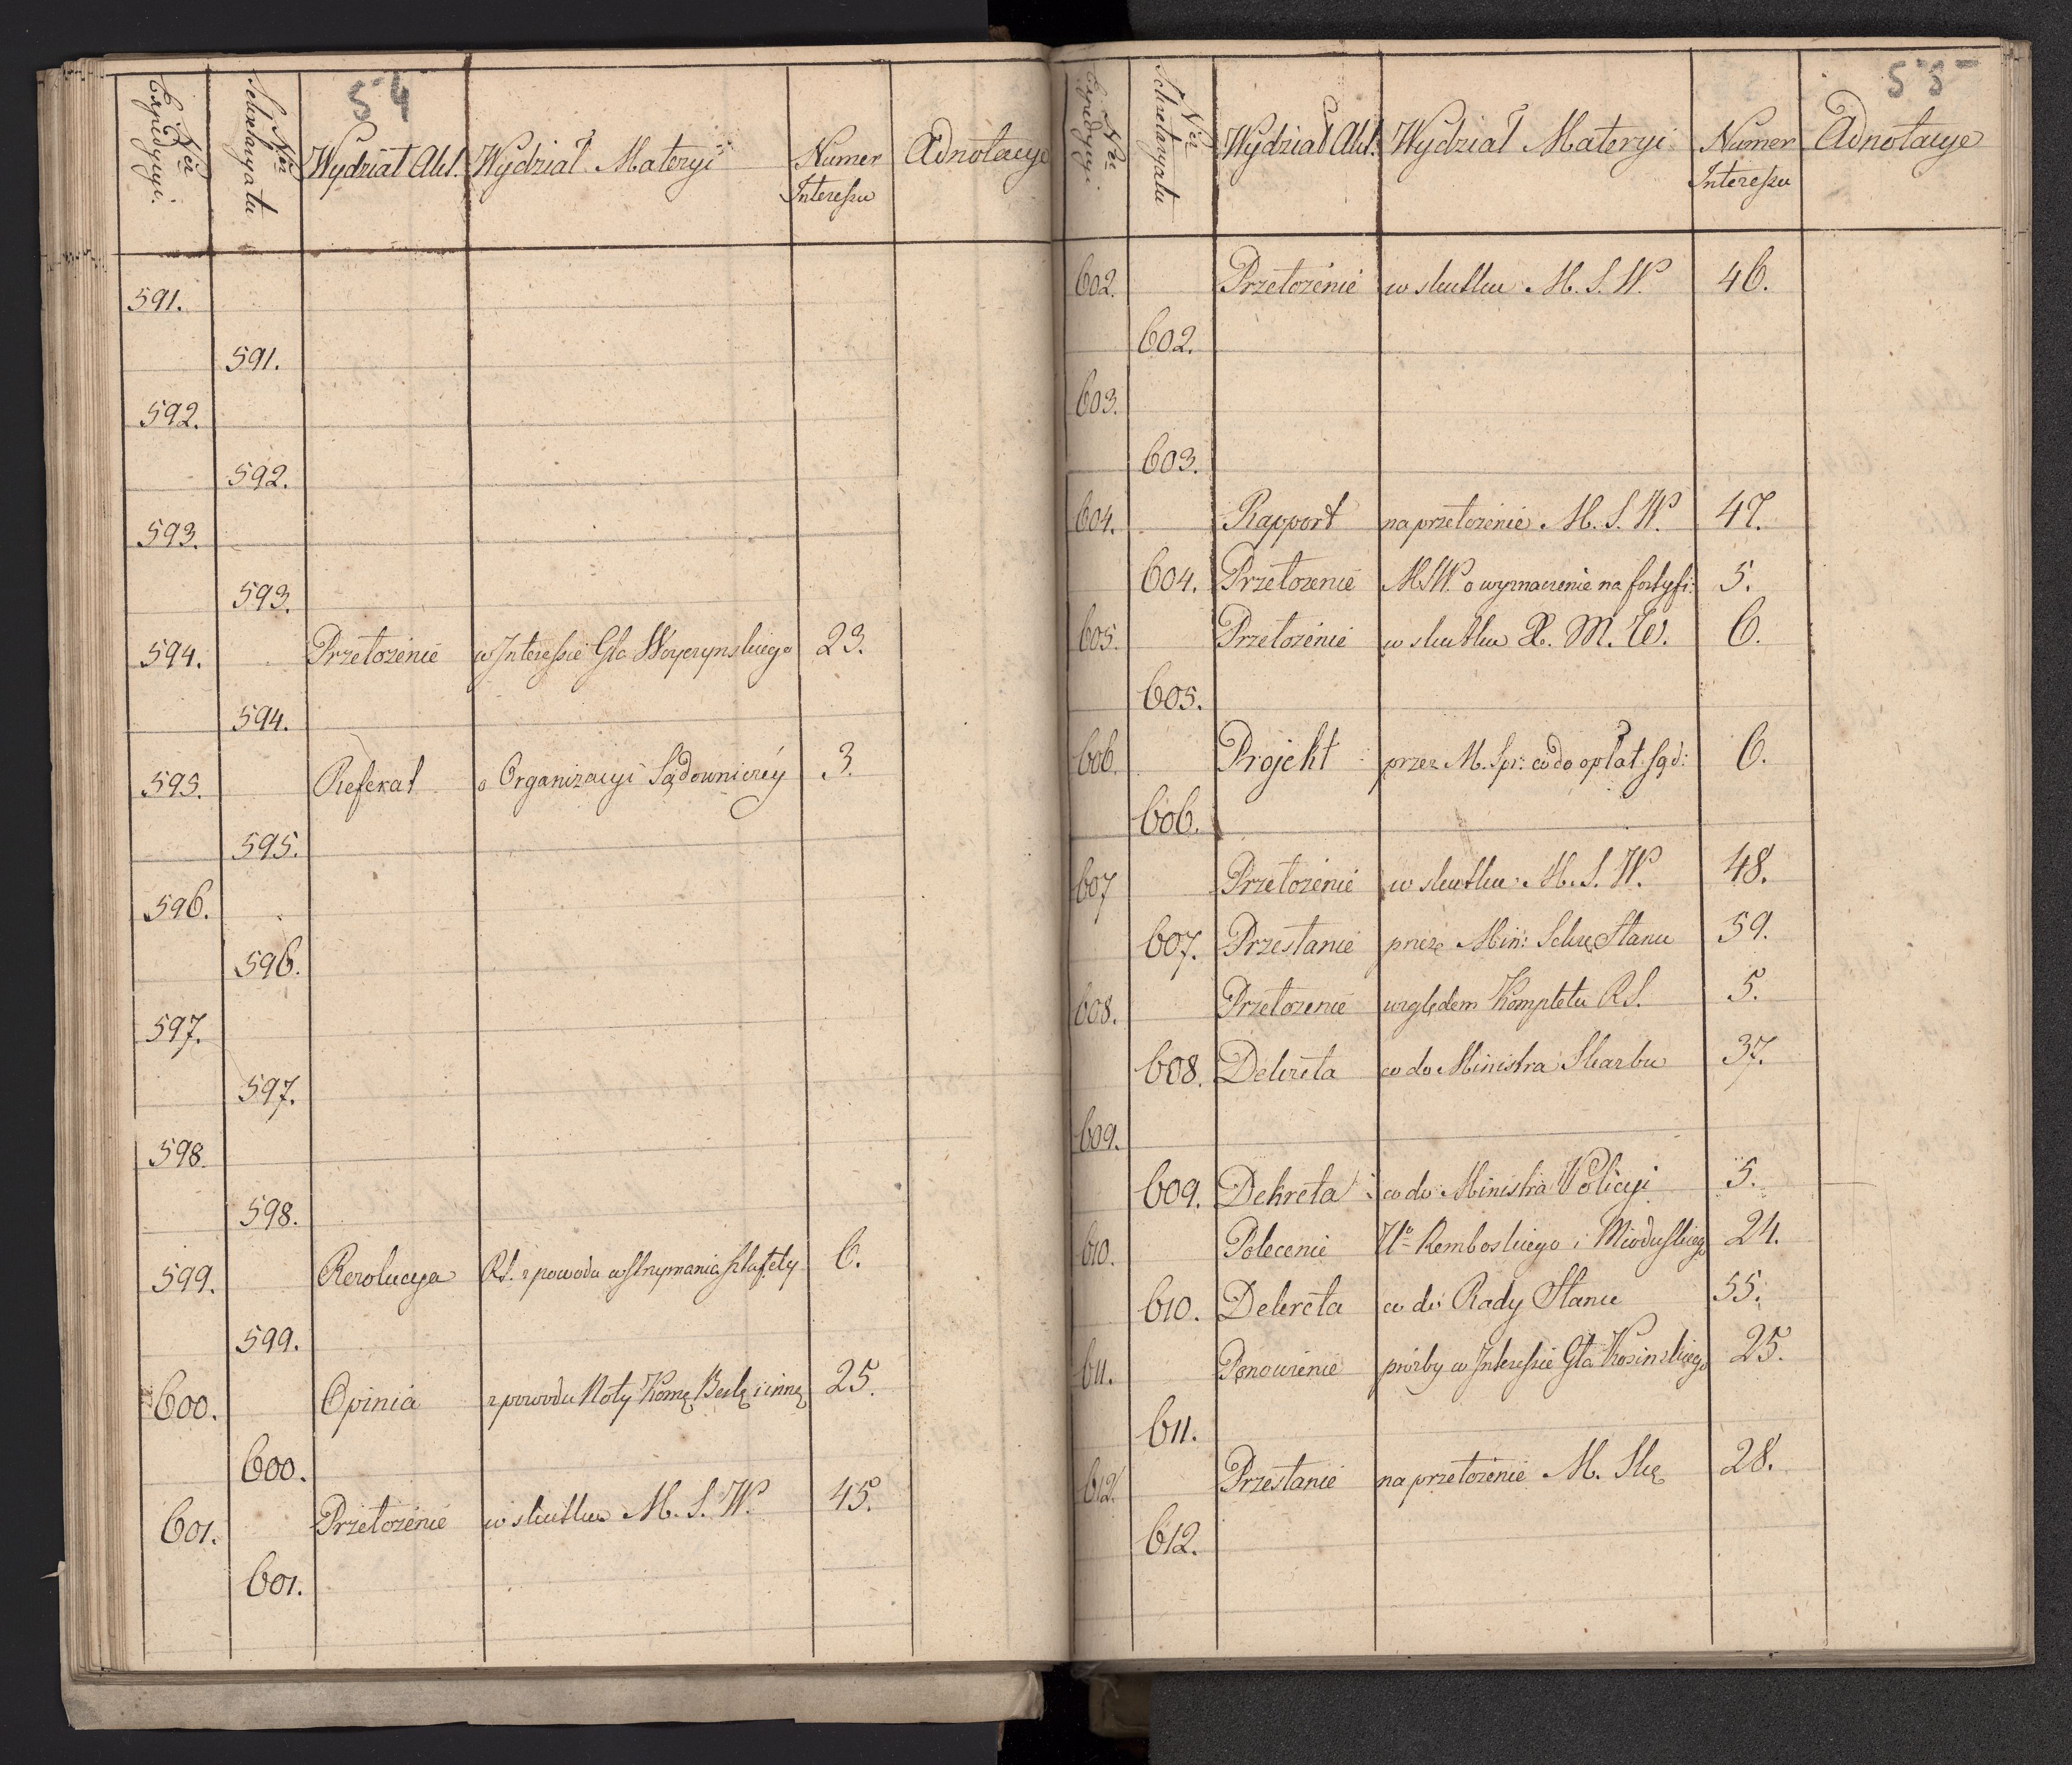 54
Ner Expedycyi. Ner Sekretaryatu Wydział Akt. Wydział Materyi Numer Interessu Adnotacye
591.
591.
592.
592.
593.
593.
594. Przełożenie w Interessie Gła Woyczynskiego 23.
594.
595. Referat o Organizacyi Sądowniczéy 3.
595.
596.
596.
597.
597.
598.
598.
599. Rezolucya RS. z powodu wstrzymania sztafety 6.
599.
600. Opinia z powodu Noty Komę. Berlę i innę 25.
600.
601. Przełożenie w skutku M. S. W. 45.
601.
55
Ner Expedycyi Ner Sekretaryatu Wydział Akt. Wydział Materyi Numer Interessu Adnotacye
602. Przełożenie w skutku M. S. W. 46.
602.
603.
603.
604. Rapport na przełożenie M. S. W. 47.
604. Przełożenie MSW. o wyznaczenie na fortyfi: 5.
605. Przełożenie w skutku X. M. W. 6.
605.
606. Projekt przez M. Spr: co do opłat sąd: 6.
606.
607 Przełożenie w skutku M. S. W. 48.
607. Przesłanie przez Min: Sekrę Stanu 59.
608. Przełożenie względem Kompletu RS. 5.
608. Dekreta co do Ministra Skarbu 37.
609.
609. Dekreta co do Ministra Policyi 5.
610. Polecenie Uo Remboskiego i Mioduskiego 24.
610. Dekreta co do Rady Stanu 55.
611. Ponowienie prośby w Interessie Gła Kosinskiego 25.
611.
612. Przesłanie na przełożenie M. Skę 28.
612.